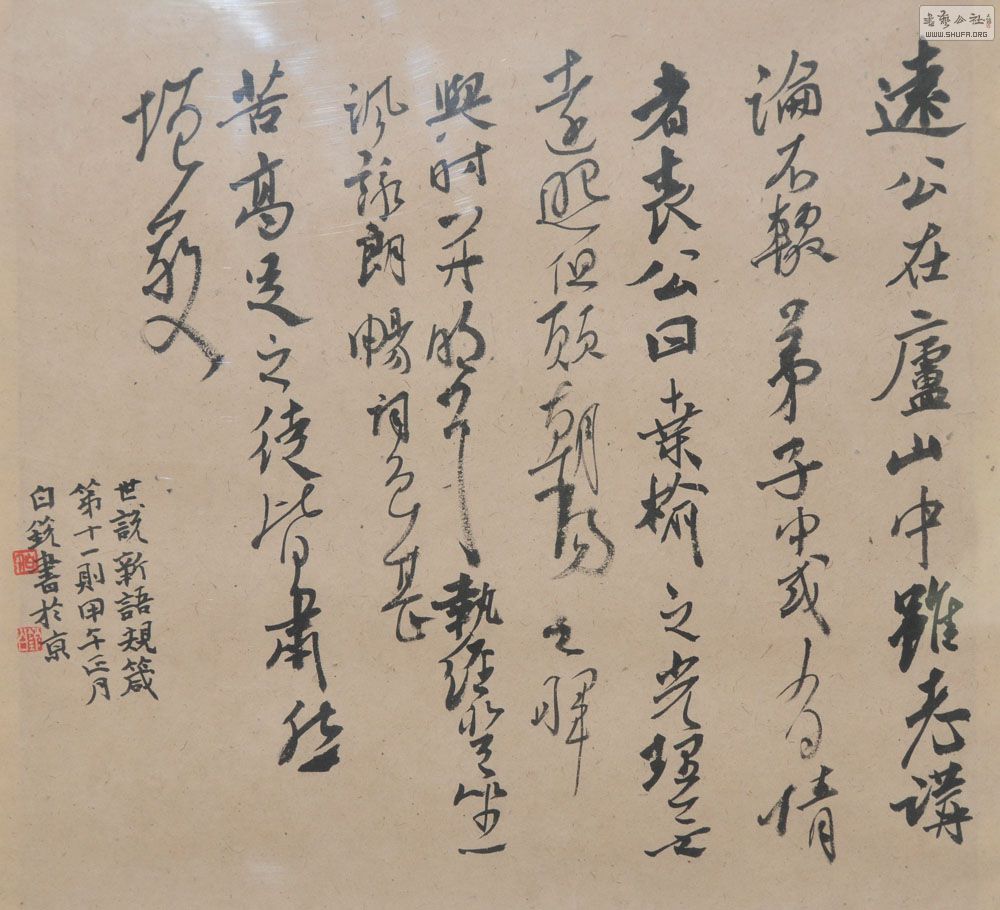 遠公在廬山中雖老講
論不輟弟子中或有情
者袁公曰桑榆之光理無
遠照但願朝陽之暉
與時并明耳執經登坐
諷詠朗暢詞色甚
苦高足之徒皆肅然
增敬
世說新語規箴
第十一則甲午正月
白書於京
書藝公社
WWW.SHUFA.ORG